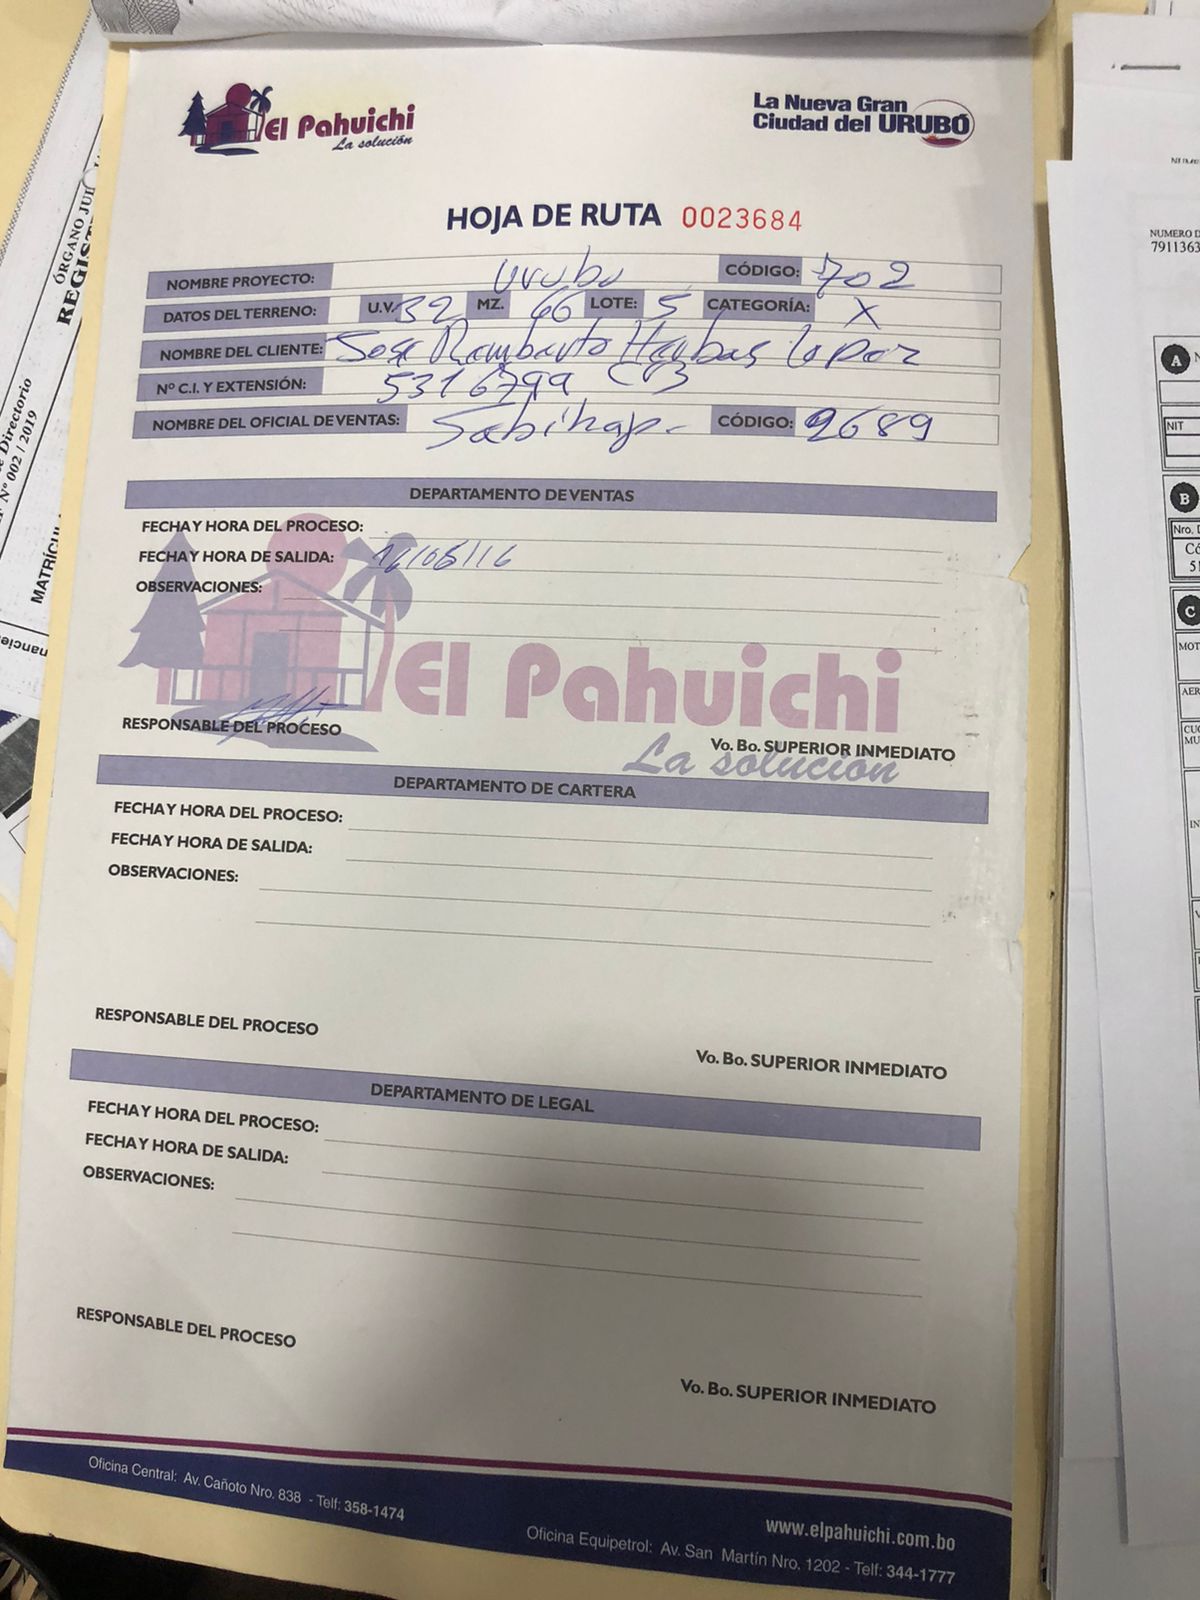 El Pahuichi
La solución
La Nueva Gran
Ciudad del URUBÓ
HOJA DE RUTA 0023684
NOMBRE PROYECTO: Urubo CÓDIGO: 702
DATOS DEL TERRENO: U.V. 32 MZ. 66 LOTE: 5 CATEGORÍA: X
NOMBRE DEL CLIENTE: Jose Lopez
Nº C.I. Y EXTENSIÓN: 5316799 CB
NOMBRE DEL OFICIAL DE VENTAS: CÓDIGO: 2689
DEPARTAMENTO DE VENTAS
FECHA Y HORA DEL PROCESO:
FECHA Y HORA DE SALIDA: 16/05/16
OBSERVACIONES:
El Pahuichi
La solución
RESPONSABLE DEL PROCESO
Vo. Bo. SUPERIOR INMEDIATO
DEPARTAMENTO DE CARTERA
FECHA Y HORA DEL PROCESO:
FECHA Y HORA DE SALIDA:
OBSERVACIONES:
RESPONSABLE DEL PROCESO
Vo. Bo. SUPERIOR INMEDIATO
DEPARTAMENTO DE LEGAL
FECHA Y HORA DEL PROCESO:
FECHA Y HORA DE SALIDA:
OBSERVACIONES:
RESPONSABLE DEL PROCESO
Vo. Bo. SUPERIOR INMEDIATO
Oficina Central: Av. Cañoto Nro. 838 - Telf: 358-1474
www.elpahuichi.com.bo
Oficina Equipetrol: Av. San Martín Nro. 1202 - Telf: 344-1777
ÓRGANO JUI
REGIS
Directorio
Nº 002 / 2019
MATRÍCU
NUMERO D
7911363
A
NIT
B
Nro.
C
MOT
AER